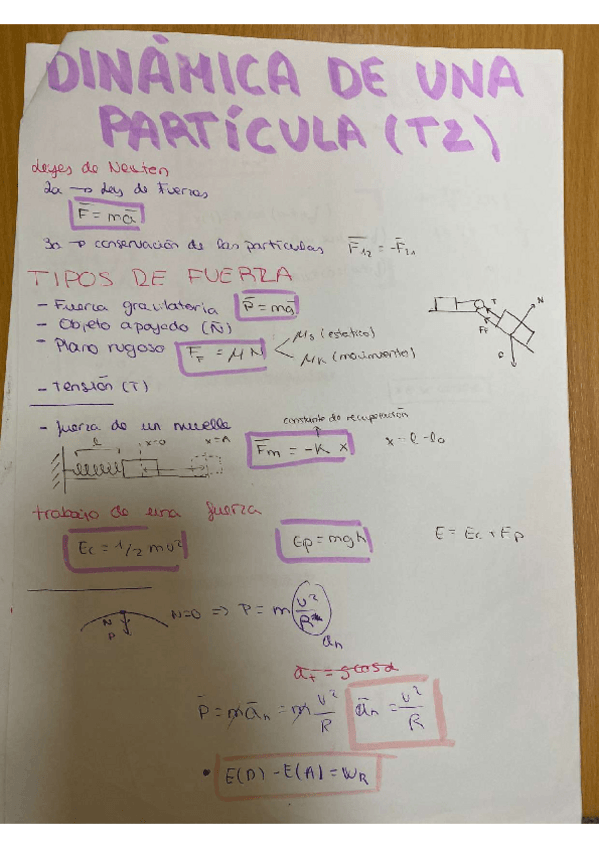 DINÁMICA DE UNA
PARTÍCULA (T2)
Leyes de Newton
2a → Ley de Fuerzas
F̄ = mā
3a → conservación de las partículas F̄₁₂ = -F̄₂₁
TIPOS DE FUERZA
- Fuerza gravitatoria P̄ = mḡ
- Objeto apoyado (N̄)
- Plano rugoso F_F = μN
μs (estatico)
μk (movimiento)
T
N
FF
P
- Tensión (T)
- fuerza de un muelle
constante de recuperación
F̄m = -K x
x = l - l₀
l
x=0
x=A
trabajo de una fuerza
Ec = 1/2 mv²
Ep = mgh
E = Ec + Ep
N
P
N=0 => P = m v²/R
an
at = g cosα
P̄ = m ān = m v²/R
ān = v²/R
• E(D) - E(A) = WR